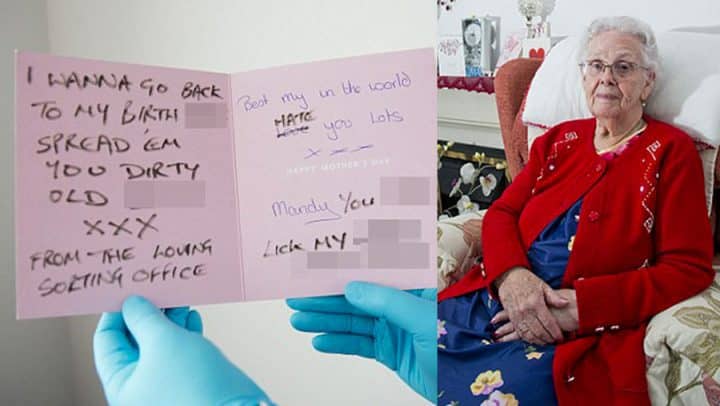 I WANNA GO BACK
TO MY BIRTH
SPREAD 'EM
YOU DIRTY
OLD
XXX
FROM THE LOVING
SORTING OFFICE
Best my in the world
HATE
you lots
x x x
HAPPY MOTHER'S DAY
Mandy YOU
LICK MY